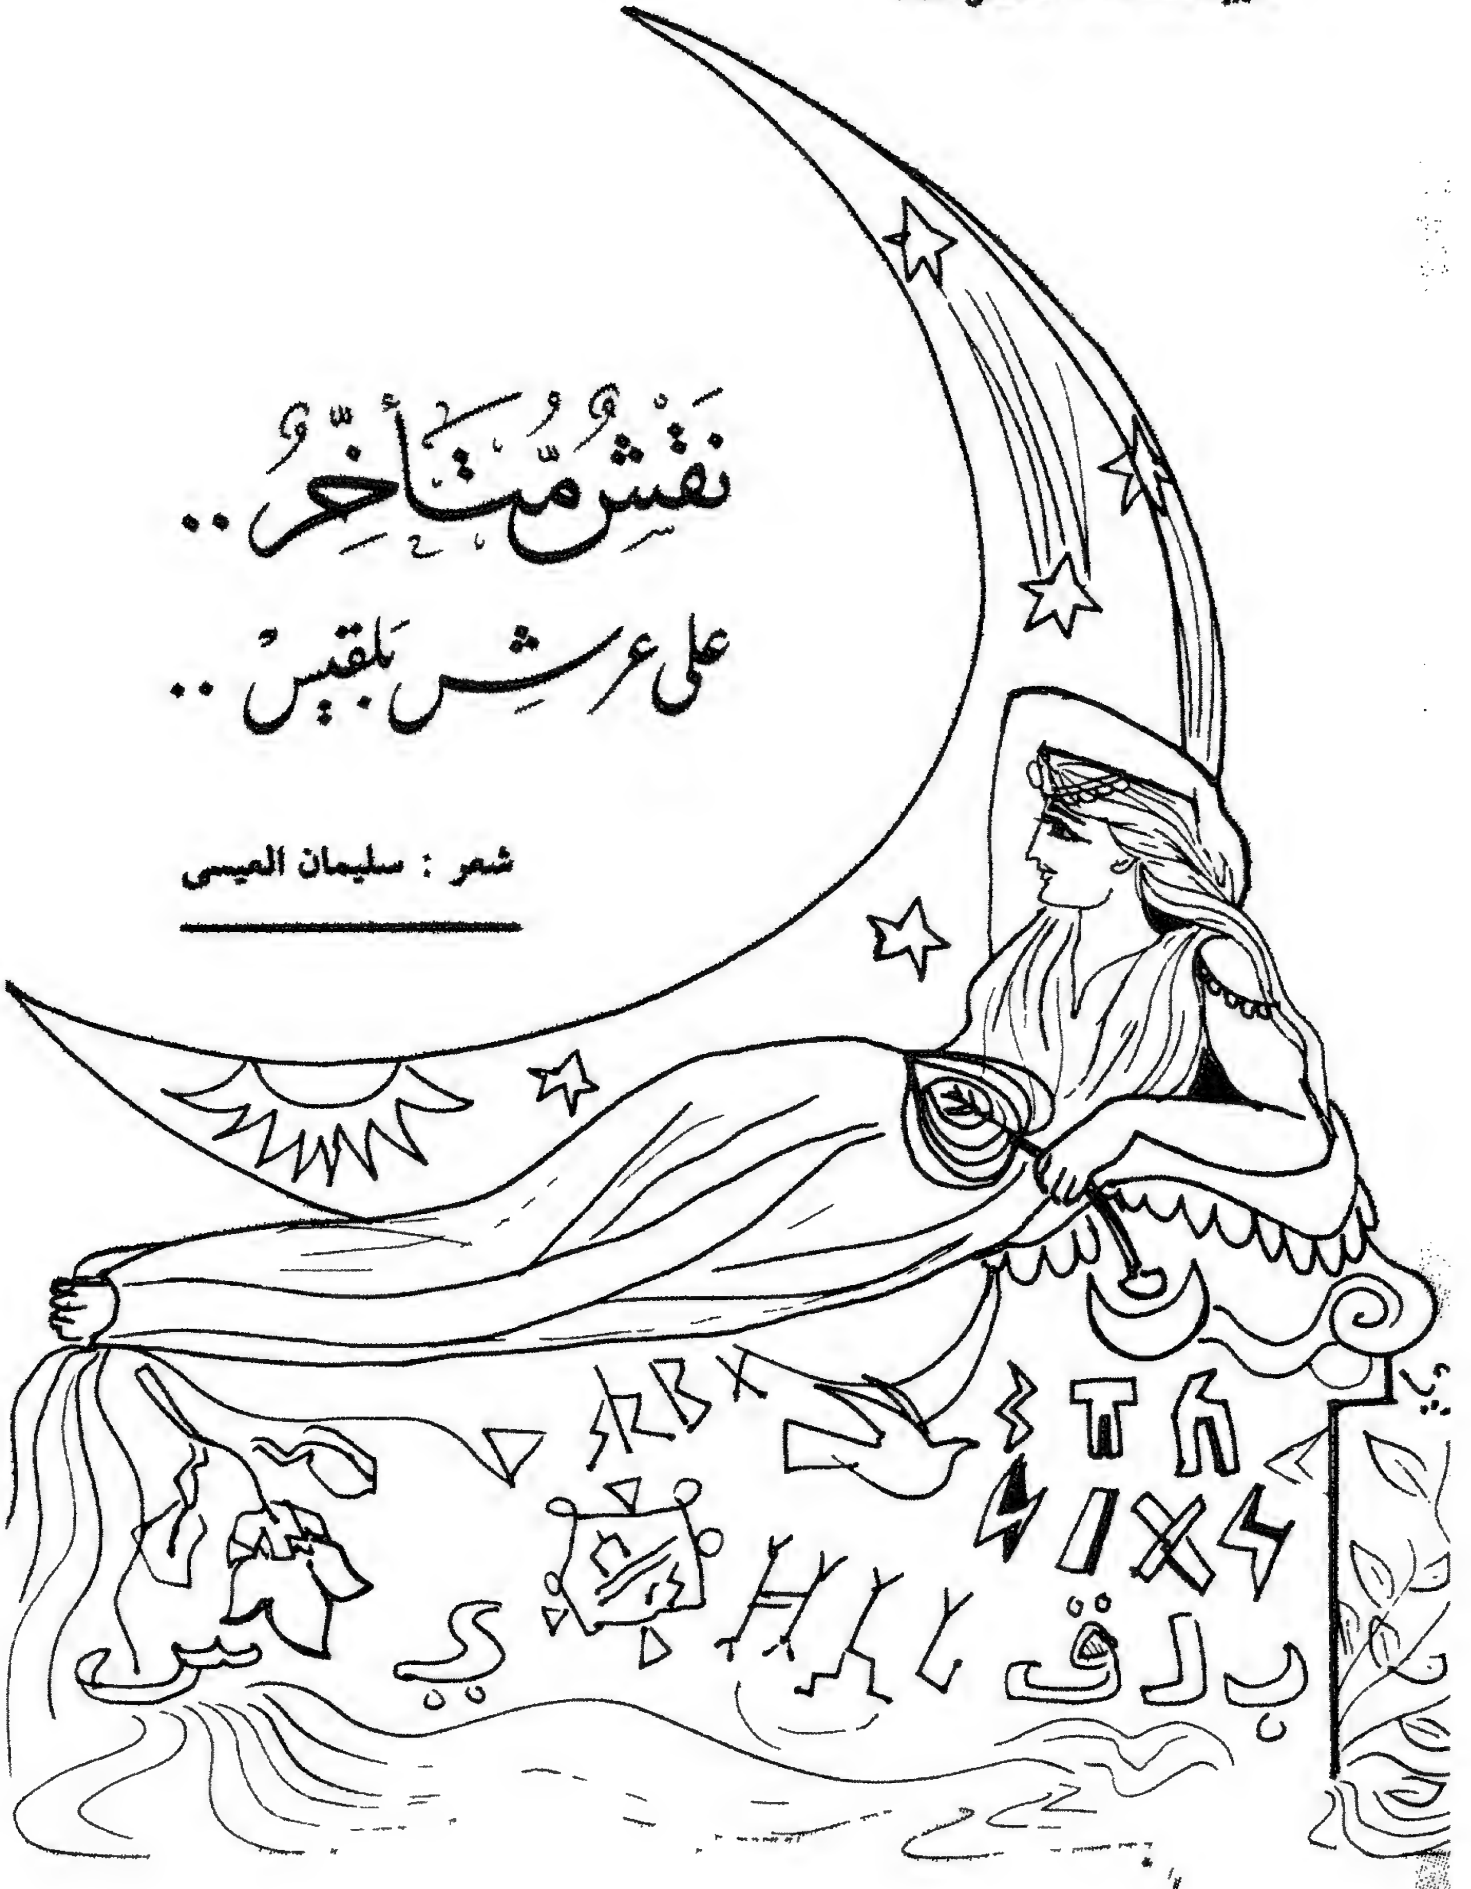 نَقْشٌ مُّتَأَخِّرٌ ..
على عرشِ بَلقيسْ ..
شعر : سليمان العيسى
ب ل ق ي س